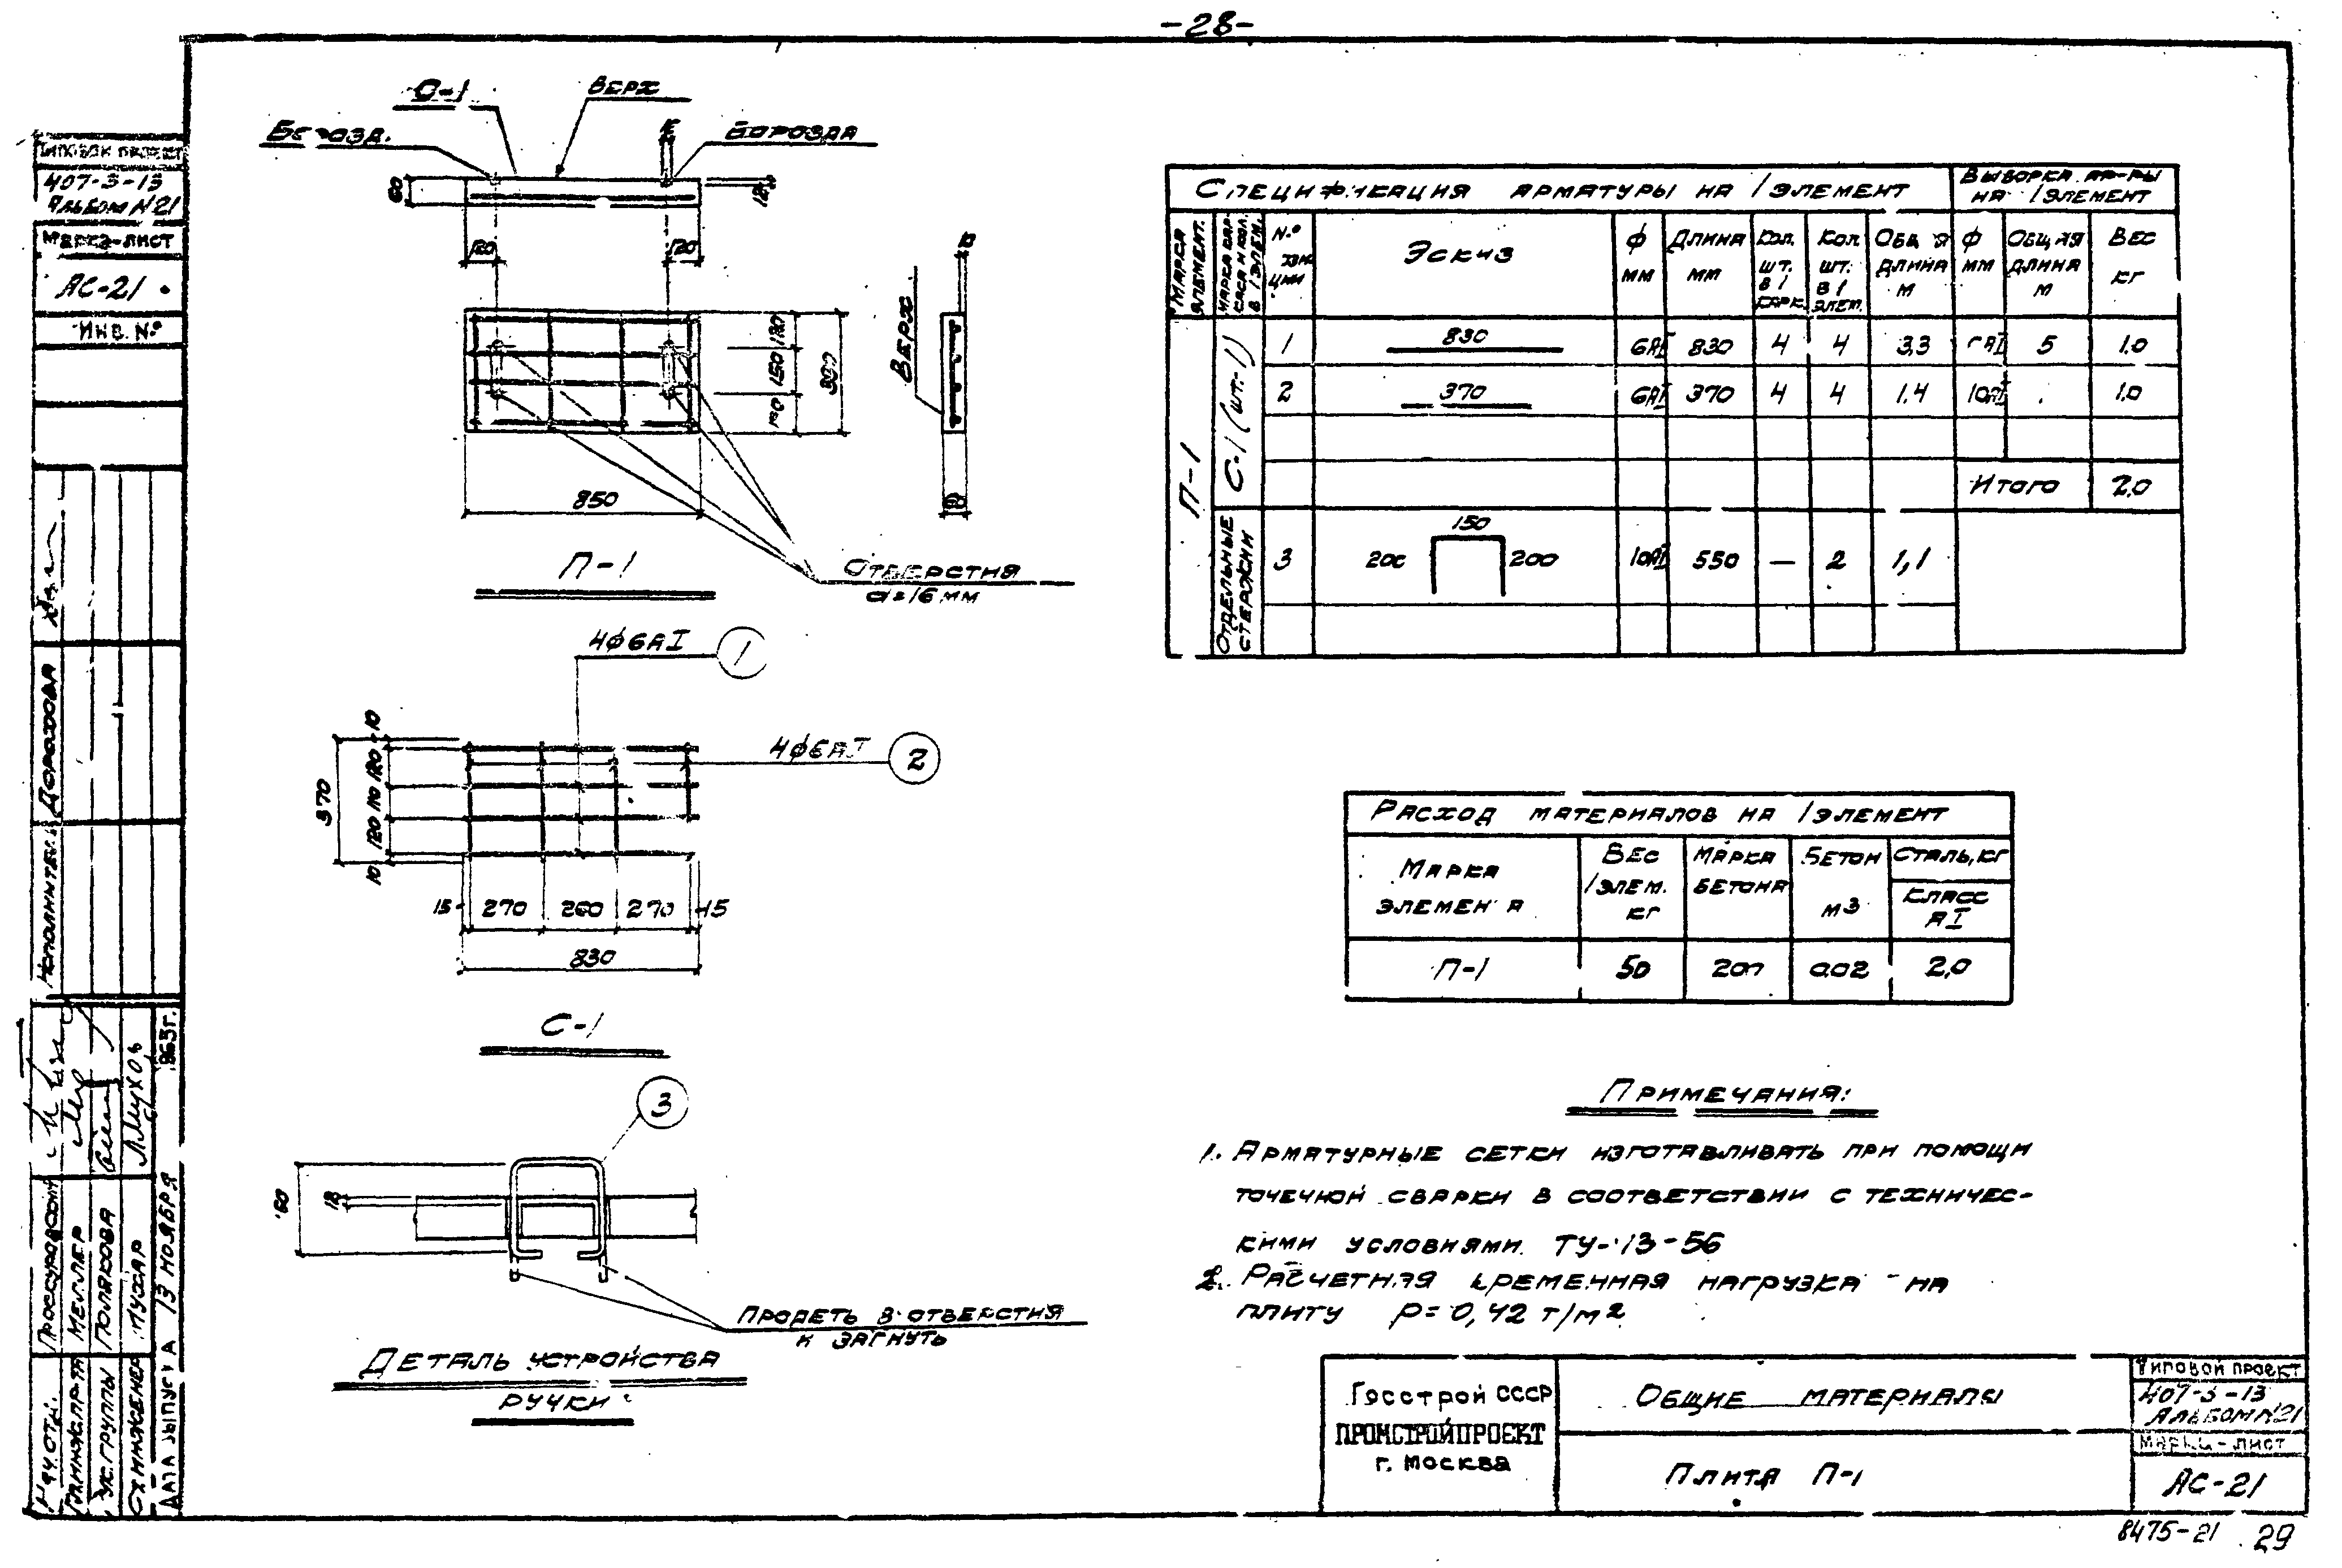 -28-
ВЕРХ
БОРОЗДА
60
120
120
ВЕРХ
120
150
850
П-1
ОТВЕРСТИЯ
d=16мм
4ф6АI
1
4ф6АI
2
10
120
110
120
10
370
15
270
260
270
15
830
С-1
3
ПРОДЕТЬ В ОТВЕРСТИЯ
И ЗАГНУТЬ
ДЕТАЛЬ УСТРОЙСТВА
РУЧКИ
СПЕЦИФИКАЦИЯ АРМАТУРЫ НА 1 ЭЛЕМЕНТ
ВЫБОРКА АР-РЫ
НА 1 ЭЛЕМЕНТ
МАРКА ЭЛЕМЕНТ.
№
ЭСКИЗ
ф
мм
ДЛИНА
мм
КОЛ.
ШТ.
В 1
КАРК.
КОЛ
ШТ.
В 1
ЭЛЕМ.
ДЛИНА
М
ф
мм
ДЛИНА
М
ВЕС
КГ
П-1
С-1 (шт.-1)
1 830 6АI 830 4 4 3,3 5 1.0
2 370 6АI 370 4 4 1.4 10АI 1.0
ИТОГО 2,0
ОТДЕЛЬНЫЕ
СТЕРЖНИ
3 150 200 10АI 550 — 2 1,1
РАСХОД МАТЕРИАЛОВ НА 1 ЭЛЕМЕНТ
МАРКА
ВЕС
1 ЭЛЕМ.
КГ
МАРКА
БЕТОНА
БЕТОН
М3
СТАЛЬ, КГ
КЛАСС
АI
П-1 50 200 0.02 2,0
ПРИМЕЧАНИЯ:
1. АРМАТУРНЫЕ СЕТКИ ИЗГОТАВЛИВАТЬ ПРИ ПОМОЩИ
ТОЧЕЧНОЙ СВАРКИ В СООТВЕТСТВИИ С ТЕХНИЧЕС-
КИМИ УСЛОВИЯМИ ТУ-13-56
2. РАСЧЕТНАЯ ВРЕМЕННАЯ НАГРУЗКА НА
ПЛИТУ P=0,42 т/м2
Госстрой СССР
ПРОМСТРОЙПРОЕКТ
г. МОСКВА
ОБЩИЕ МАТЕРИАЛЫ
ПЛИТА П-1
ТИПОВОЙ ПРОЕКТ
407-3-13
АЛЬБОМ №21
МАРКА-ЛИСТ
АС-21
8475-21 29
ТИПОВОЙ ПРОЕКТ
407-3-13
АЛЬБОМ №21
МАРКА-ЛИСТ
АС-21
ИНВ. №
ДОРОХОВА
МЕЛЛЕР
ПОЛЯКОВА
ДАТА ВЫПУСКА 13 НОЯБРЯ